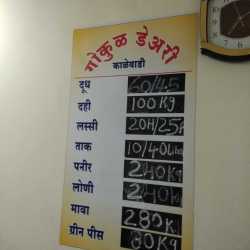 गोकुळ डेअरी
काळेवाडी
दूध 60/45
दही 100 Kg
लस्सी 20H/25F
ताक 10/40
पनीर 240 Kg
लोणी 240 K
मावा 280 K
ग्रीन पीस 80 Kg